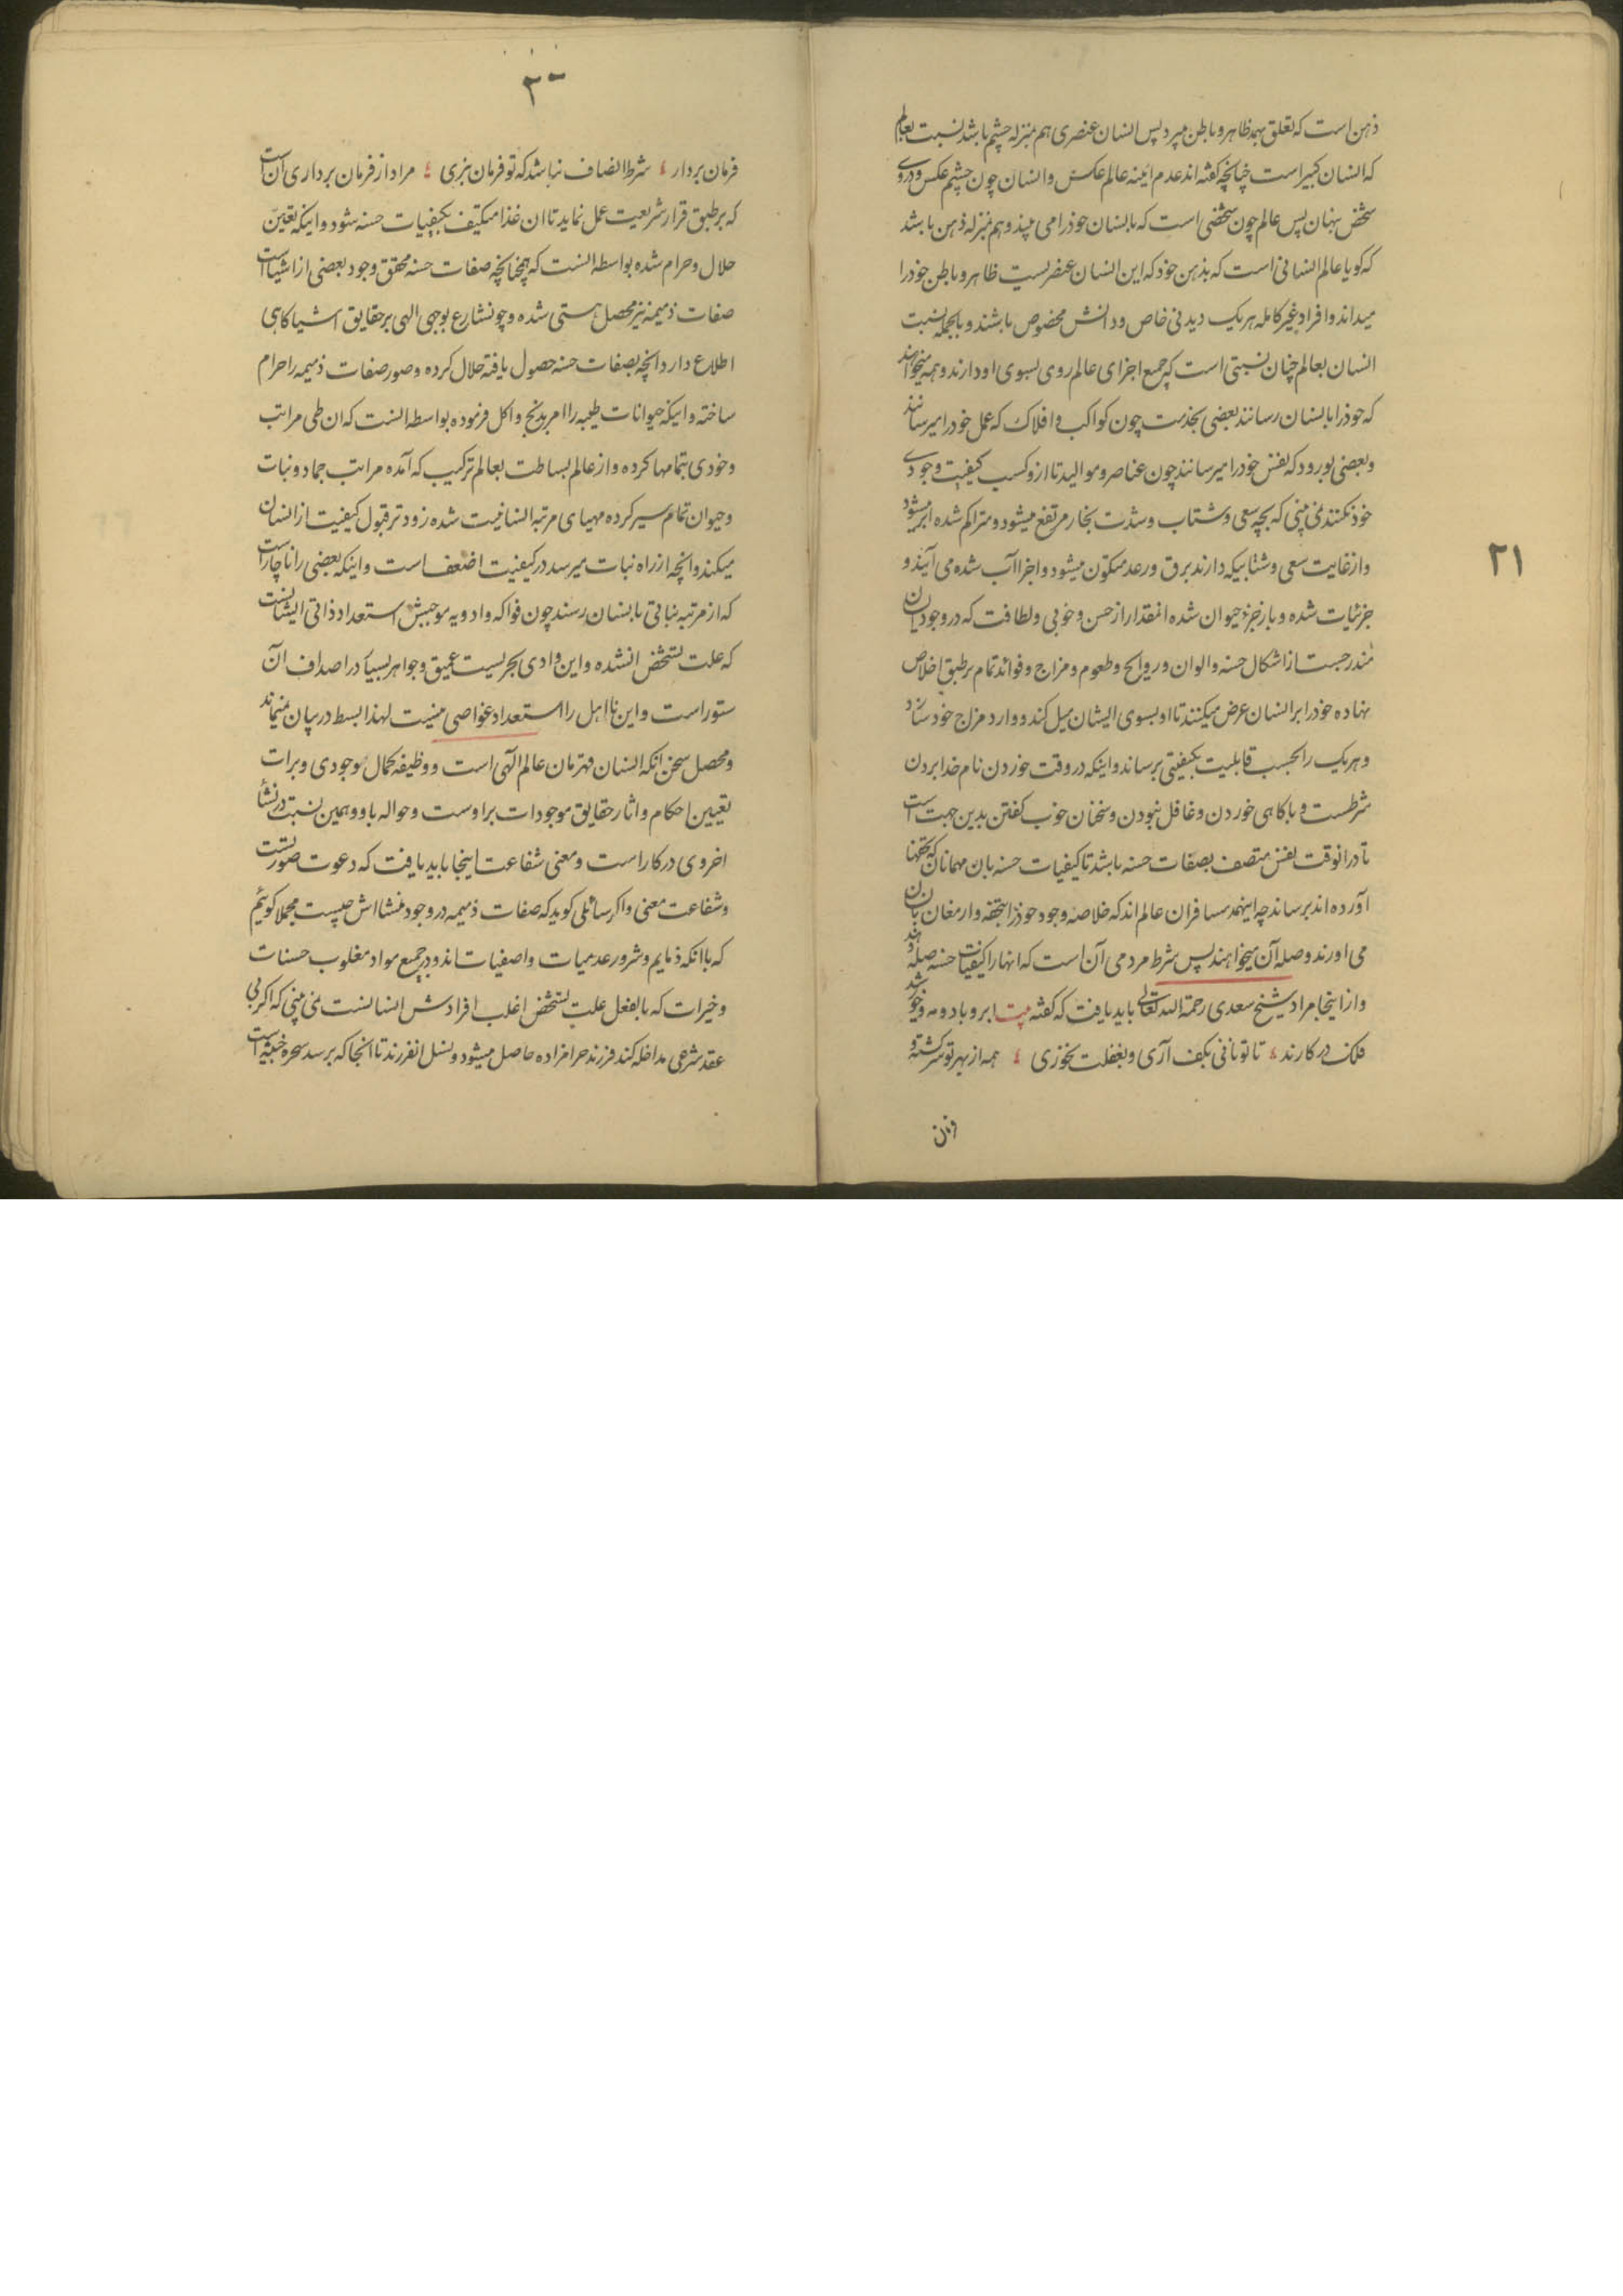 ذهن است که تعلق بهمه ظاهر و باطن میپرد پس انسان عنصری هم بمنزله چشم باشد نسبت بعالم
که انسان کبیر است چنانچه گفته اند عدم آینه عالم عکس و انسان چون چشم عکس و در وی
شخص پنهان پس عالم چون شخصی است که بانسان خود را می بیند و هم بمنزله ذهن باشد
که کویا عالم انسانی است که بذهن خود که این انسان عنصریست ظاهر و باطن خود را
میداند و افراد غیر کامله هر یک دیدنی خاص و دانش مخصوص باشند و بالجمله نسبت
انسان بعالم چنان نسبتی است که جمیع اجزای عالم روی بسوی او دارند و همه میخواهند
که خود را بانسان رسانند بعضی بخدمت چون کواکب و افلاک که عمل خود را میرسانند
و بعضی بورود که نفس خود را میرسانند چون عناصر و موالید تا ازو کسب کیفیت وجودی
خود کنند نمی بینی که بچه سعی و شتاب و شدت بخار مرتفع میشود و متراکم شده ابر میشود
و از غایت سعی و شتابیکه دارند برق و رعد متکون میشود و اجزا آب شده می آیند و
جزء نبات شده و باز جزء حیوان شده انمقدار از حسن و خوبی و لطافت که در وجود ایشان
مندرجست از اشکال حسنه و الوان و روایح و طعوم و مزاج و فوائد تمام بر طبق اخلاص
نهاده خود را بر انسان عرض میکنند تا او بسوی ایشان میل کند و وارد مزاج خود سازد
و هر یک را بحسب قابلیت بکیفیتی برساند و اینکه در وقت خوردن نام خدا بردن
شرطست و باکاهی خوردن و غافل نبودن و سخنان خوب کفتن بدین جهت است
تا در انوقت نفس متصف بصفات حسنه باشد تا کیفیات حسنه بان مهمانان که تحفها
آورده اند برساند چه اینهمه مسافران عالم اند که خلاصه وجود خود را بتحفه و ارمغان بانسان
می اورند و صله آن میخواهند پس شرط مردمی آن است که انها را کیفیات حسنه صله دهند
و از اینجا مراد شیخ سعدی رحمة الله تعالی باید یافت که کفته بیت ابر و باد و مه و خورشید
فلک در کارند تا تو نانی بکف آری و بغفلت نخوری همه از بهر تو سرکشته و
۲۱
۳۰
فرمان بردار شرط انصاف نباشد که تو فرمان نبری مراد از فرمان برداری آن است
که بر طبق قرار شریعت عمل نماید تا ان غذا متکیف بکیفیات حسنه شود و اینکه تعین
حلال و حرام شده بواسطه انست که همچنانچه صفات حسنه محقق وجود بعضی از اشیا است
صفات ذمیمه نیز محصل هستی شده و چون شارع بوحی الهی بر حقایق اشیا کاهی
اطلاع دارد انچه بصفات حسنه حصول یافته حلال کرده و صور صفات ذمیمه را حرام
ساخته و اینکه حیوانات طیبه را امر بذبح و اکل فرموده بواسطه انست که ان طی مراتب
وخودی بتمامها کرده و از عالم بساطت بعالم ترکیب که آمده مراتب جماد و نبات
و حیوان تمام سیر کرده مهیای مرتبه انسانیت شده زودتر قبول کیفیت از انسان
میکند و انچه از راه نبات میرسد در کیفیت اضعف است و اینکه بعضی را ناچار است
که از مرتبه نباتی بانسان رسند چون فواکه و ادویه موجبش استعداد ذاتی ایشانست
که علت تشخص انشده و این وادی بحریست عمیق و جواهر بسیار در اصداف ان
ستور است و این نااهل را استعداد غواصی نیست لهذا بسط در بیان نمینماید
و محصل سخن انکه انسان قهرمان عالم الهی است و وظیفه کمال موجودی و برات
تعیین احکام و اثار حقایق موجودات بر اوست و حواله باو و همین نسبت در نشأ
اخروی در کار است و معنی شفاعت اینجا باید یافت که دعوت صورتست
و شفاعت معنی و اکر سائلی کوید که صفات ذمیمه در وجود منشا اش چیست مجملا کویم
که با انکه ذمایم و شرور عدمیات و اصفیات اند و در جمیع مواد مغلوب حسنات
و خیرات که بالفعل علت تشخص اغلب افرادش انسانست نمی بینی که اکر بی
عقد شرعی مداخله کند فرزند حرامزاده حاصل میشود و نسل انفرزند تا انجا که برسد شجره خبیثه است